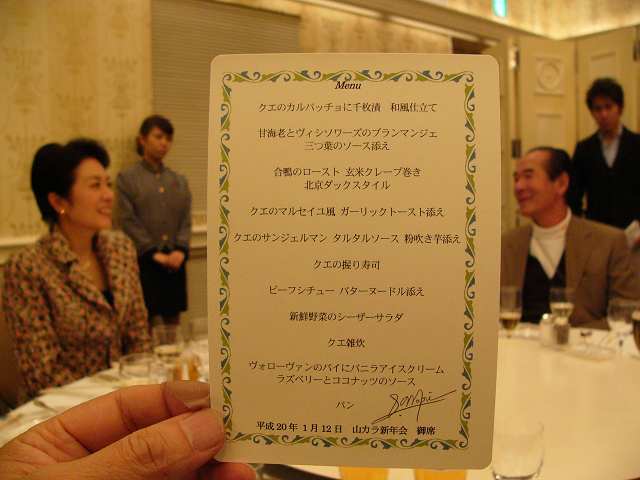 Menu
クエのカルパッチョに千枚漬 和風仕立て
甘海老とヴィシソワーズのブランマンジェ
三つ葉のソース添え
合鴨のロースト 玄米クレープ巻き
北京ダックスタイル
クエのマルセイユ風 ガーリックトースト添え
クエのサンジェルマン タルタルソース 粉吹き芋添え
クエの握り寿司
ビーフシチュー バターヌードル添え
新鮮野菜のシーザーサラダ
クエ雑炊
ヴォローヴァンのパイにバニラアイスクリーム
ラズベリーとココナッツのソース
パン
平成20年 1月12日 山カラ新年会 御席